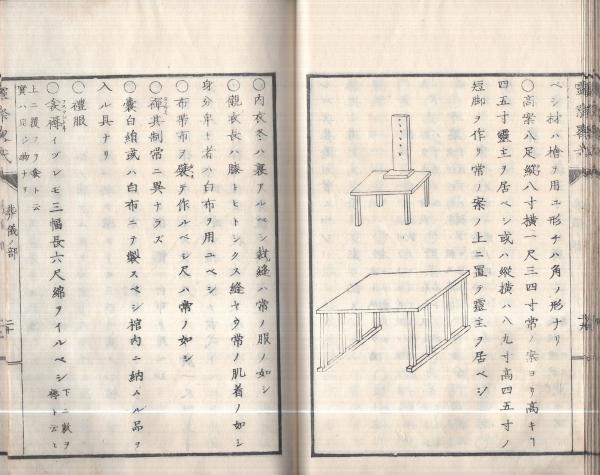 ベシ材ハ檜ヲ用ユ形チハ角ノ形ナリ
○高案八足縦八寸横一尺三四寸常ノ案ヨリ高キ
四五寸靈主ヲ居ベシ或ハ縦横ハ八九寸高四五寸ノ
短脚ヲ作リ常ノ案ノ上ニ置テ靈主ヲ居ベシ
○内衣冬ハ裏アルベシ裁縫ハ常ノ服ノ如シ
○襯衣長ハ膝トヒトシクス縫ヤウ常ノ肌着ノ如シ
身分卑キ者ハ白布ヲ用ユベシ
○布帯布ヲ襞テ作ルベシ尺ハ常ノ如シ
○褌其制常ニ異ナラズ
○嚢白絹或ハ白布ニテ製スベシ棺内ニ納ムル品ヲ
入ル具ナリ
○禮服
○衾褥イヅレモ三幅長六尺綿ヲイルベシ 下ニ敷ヲ
褥ト云ヒ
上ニ覆フヲ衾ト云
實ハ同シ物ナリ
葬儀ノ部